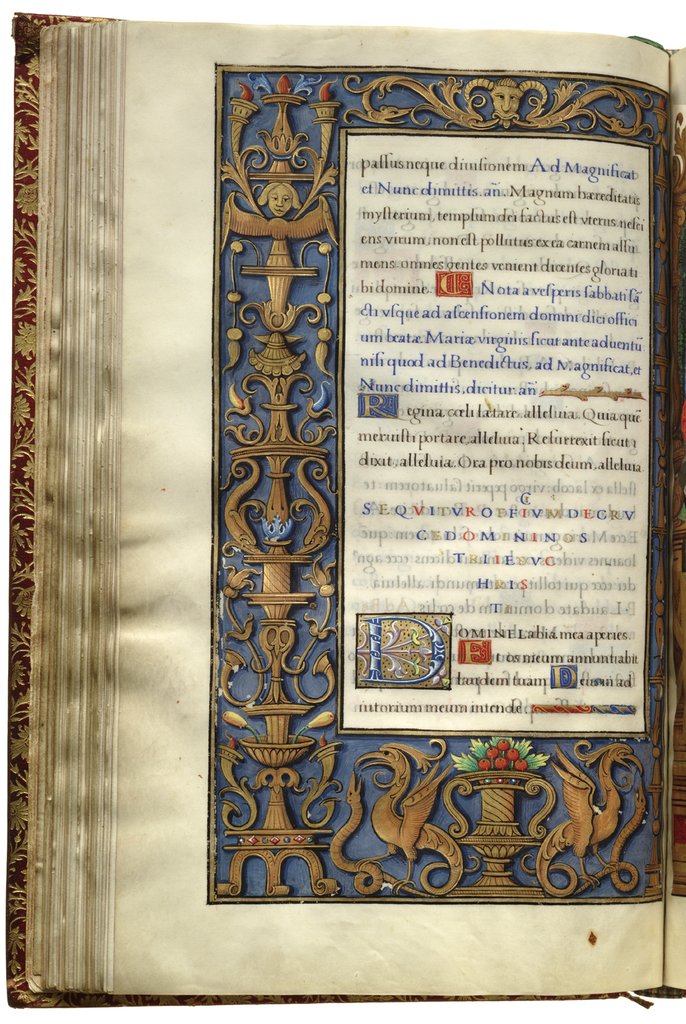 passus neque diuisionem Ad Magnificat
et Nunc dimittis. añ. Magnum hæreditatis
mysterium, templum dei factus est vterus nesci
ens virum, non est pollutus ex ea carnem assu
mens: omnes gentes venient dicentes gloria ti
bi domine. Ñota a vesperis sabbati sã
cti vsque ad ascensionem domini dici offici
um beatæ Mariæ virginis sicut ante aduentũ
nisi quod ad Benedictus, ad Magnificat, et
Nunc dimittis, dicitur. añ
Regina cœli lætare, alleluia. Quia quē
meruisti portare, alleluia, Resurrexit sicut
dixit, alleluia. Ora pro nobis deum. alleluia
SEQVITVR OFFIVM DE CRV
CE DOMINI NOS
TRI IESV C
HRIS
TI
DOMINE Labia mea aperies.
Et os meum annuntiabit
laudem tuam Deus in ad
iutorium meum intende: